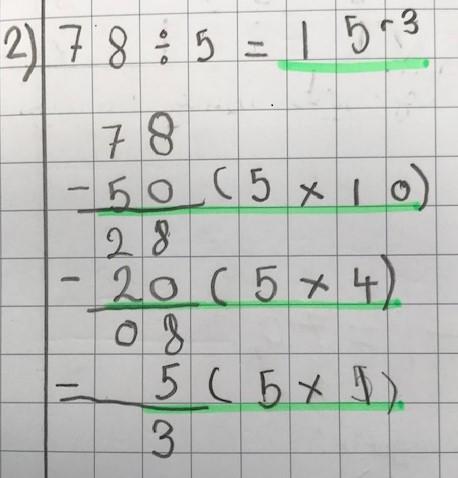 2) 78 ÷ 5 = 15 r 3
78
- 50 (5 × 10)
28
- 20 (5 × 4)
08
- 5 (5 × 1)
3